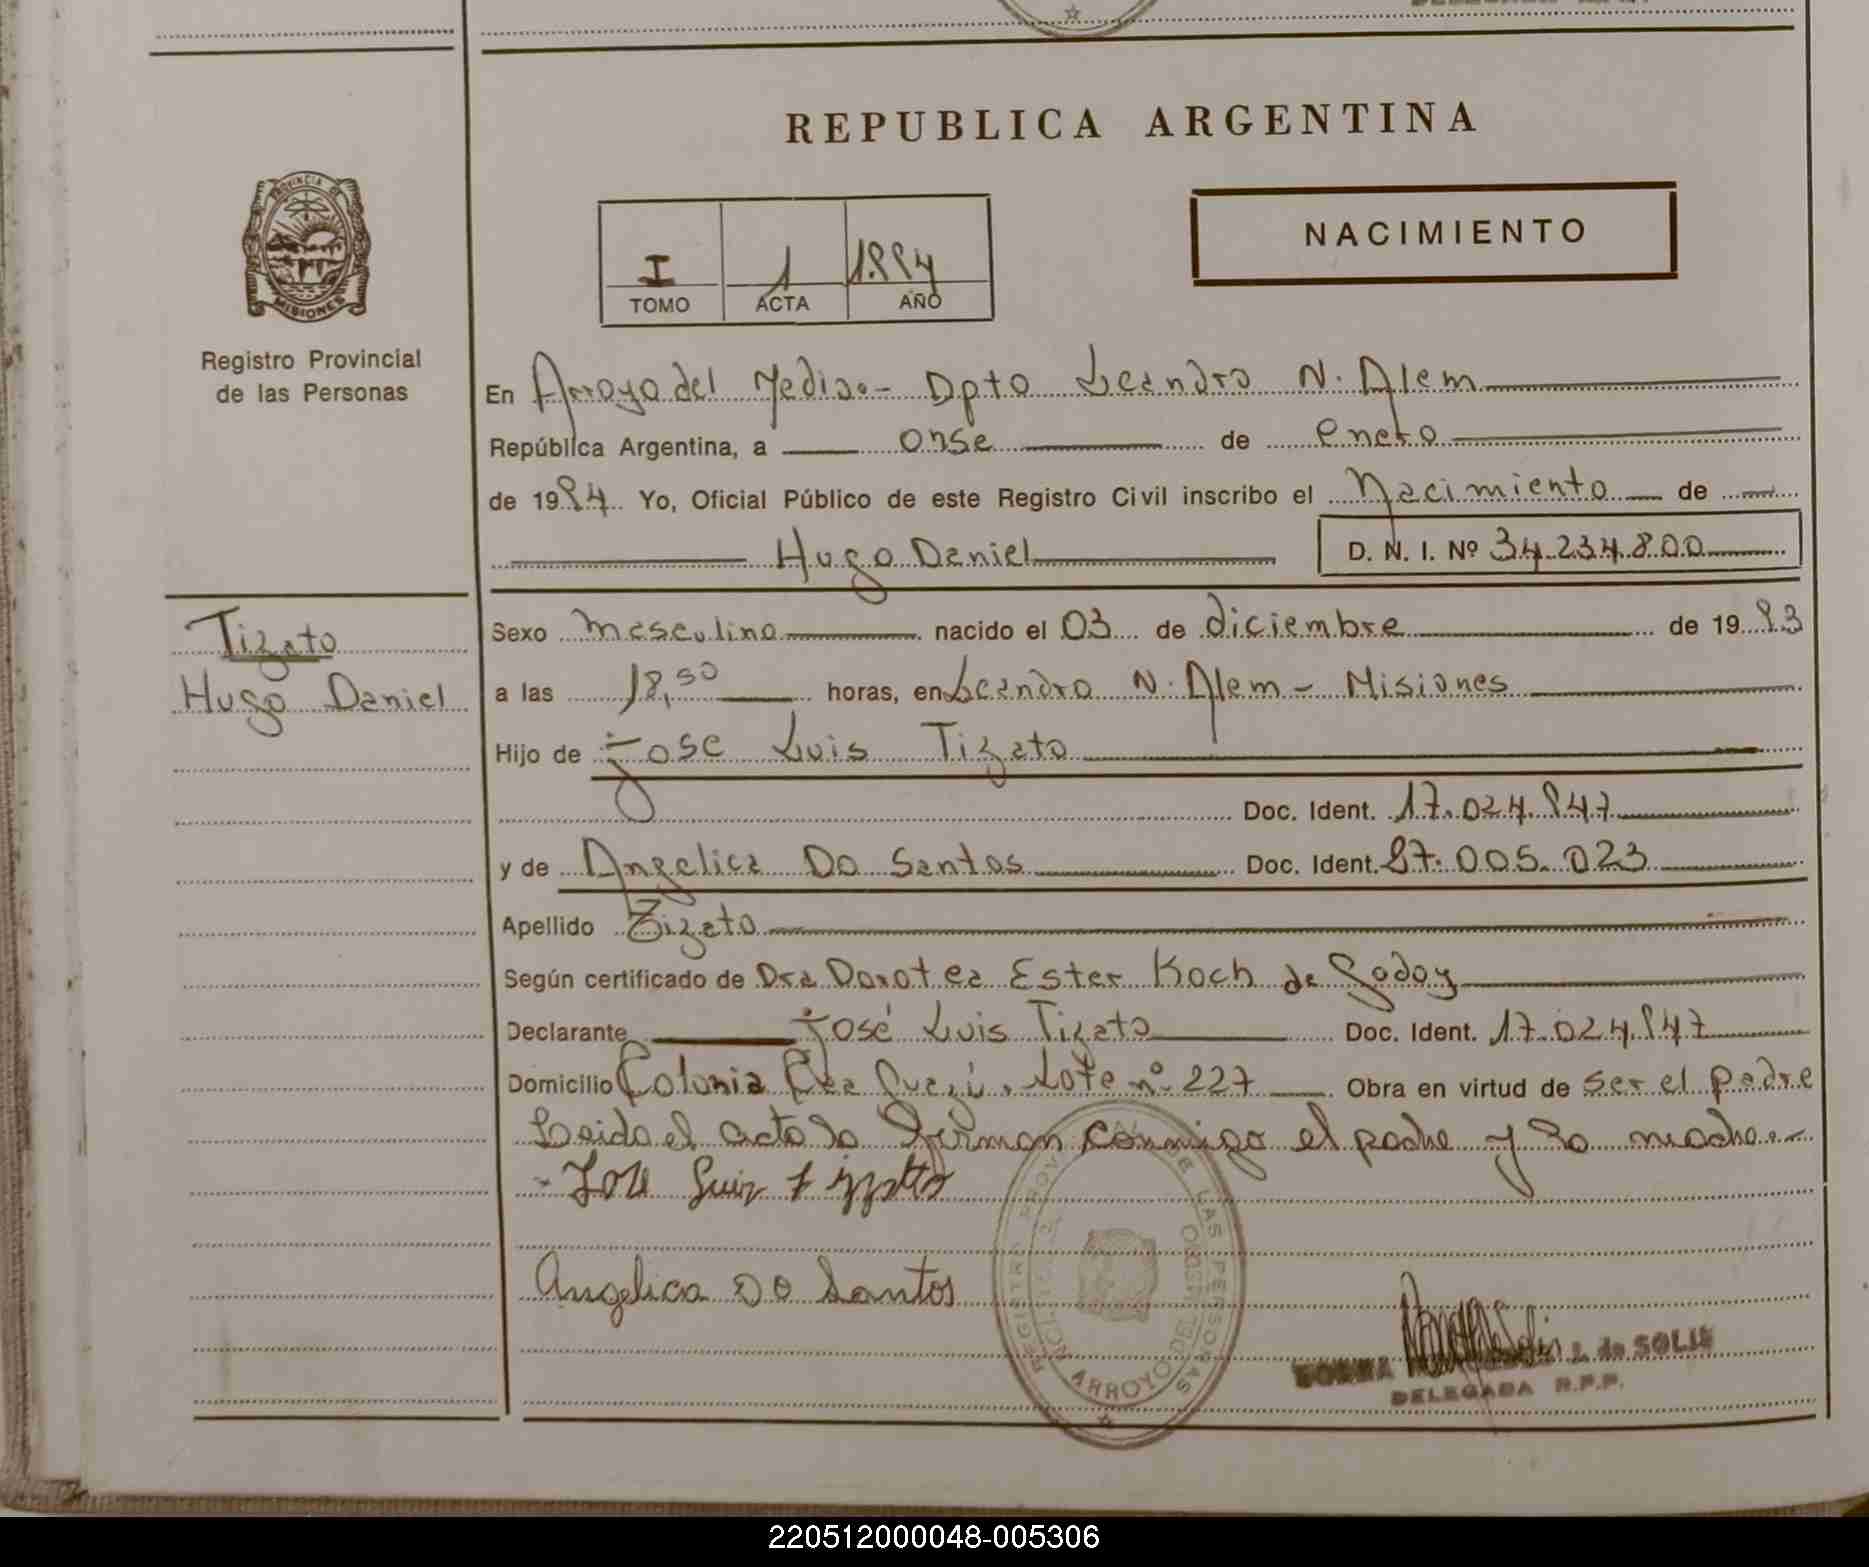 REPUBLICA ARGENTINA
PROVINCIA DE
MISIONES
Registro Provincial
de las Personas
I 1 1984
TOMO ACTA AÑO
NACIMIENTO
En Arroyo del Medio.- Dpto Leandro N. Alem
República Argentina, a onse de enero
de 1984 Yo, Oficial Público de este Registro Civil inscribo el Nacimiento de
Hugo Daniel D. N. I. Nº 34.234.800
Tizato
Hugo Daniel
Sexo masculino nacido el 03 de diciembre de 1983
a las 18,50 horas, en Leandro N. Alem - Misiones
Hijo de Jose Luis Tizato
Doc. Ident. 17.024.847
y de Angelica Do Santos Doc. Ident. 87.005.023
Apellido Tizato
Según certificado de Dra Dorotea Ester Koch de Godoy
Declarante José Luis Tizato Doc. Ident. 17.024.847
Domicilio Colonia Lote nº 227 Obra en virtud de ser el padre
Leida el acta la firman conmigo el padre y la madre.-
- Jose Luis
Angelica Do Santos
REGISTRO PROV DE LAS PERSONAS
ARROYO DEL MEDIO
NORMA L. de SOLIS
DELEGADA R.P.P.
220512000048-005306